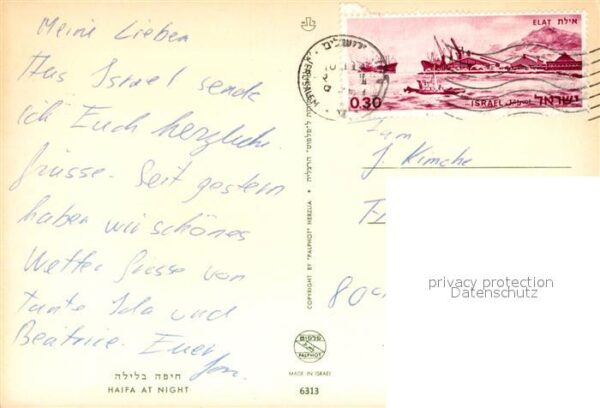 Meine Lieben
Aus Israel sende
ich Euch herzliche
Grüsse. Seit gestern
haben wir schönes
Wetter Grüsse von
Tante Ida und
Beatrice. Euer
חיפה בלילה
HAIFA AT NIGHT
COPYRIGHT BY "PALPHOT" HERZLIA •
פלפוט
PALPHOT
MADE IN ISRAEL
6313
ELAT אילת
0.30
ISRAEL ישראל
ירושלים
JERUSALEM
Fam
J. Kimche
privacy protection
Datenschutz